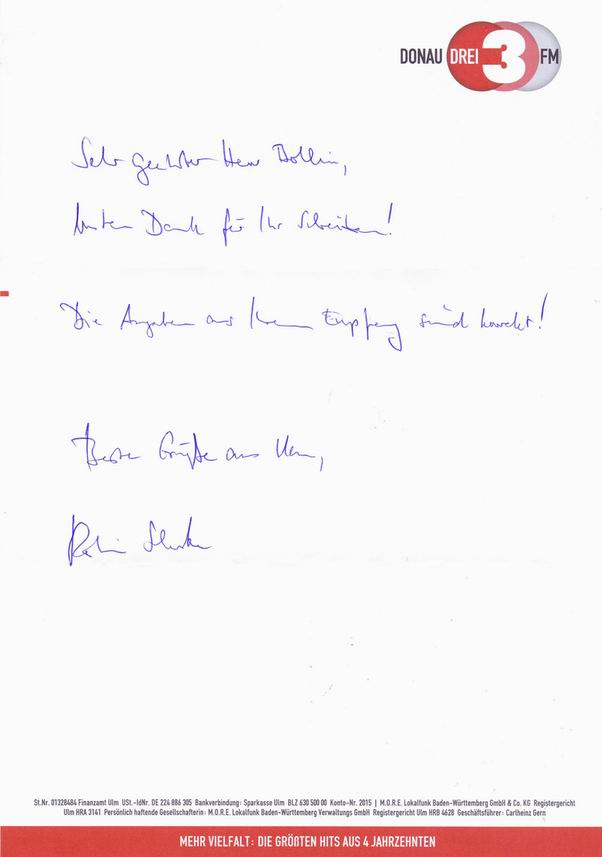 DONAU DREI 3 FM
Sehr geehrter Herr Bollin,
besten Dank für Ihr Schreiben!
Die Angaben aus Ihrem Empfang sind korrekt!
Beste Grüße aus Ulm,
St.Nr. 01328484 Finanzamt Ulm USt.-IdNr. DE 224 886 305 Bankverbindung: Sparkasse Ulm BLZ 630 500 00 Konto-Nr. 2015 | M.O.R.E. Lokalfunk Baden-Württemberg GmbH & Co. KG Registergericht
Ulm HRA 3141 Persönlich haftende Gesellschafterin: M.O.R.E. Lokalfunk Baden-Württemberg Verwaltungs GmbH Registergericht Ulm HRB 4628 Geschäftsführer: Carlheinz Gern
MEHR VIELFALT: DIE GRÖßTEN HITS AUS 4 JAHRZEHNTEN